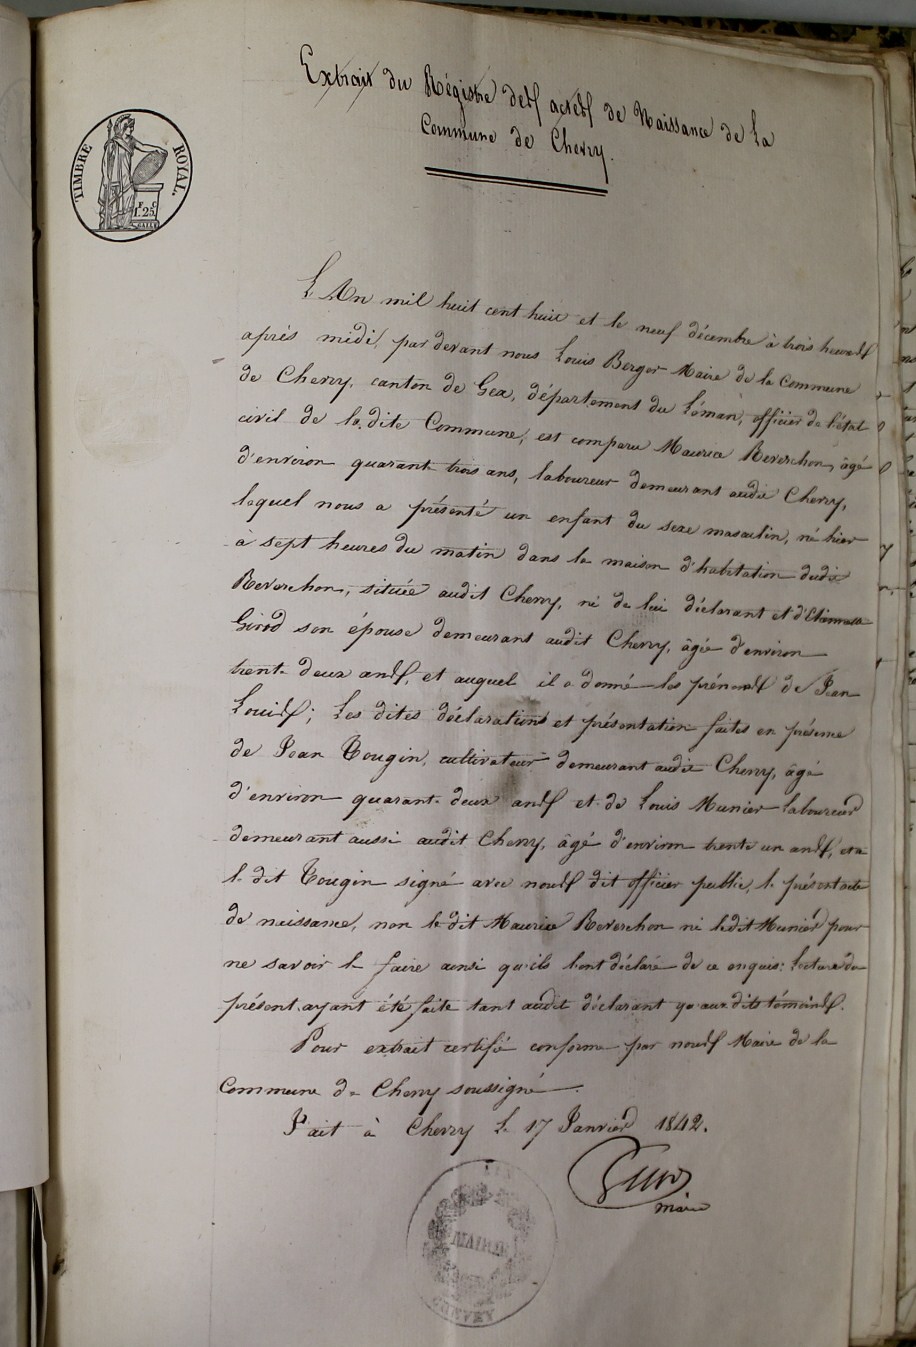 Extrait du Régistre des actes de Naissance de la
Commune de Chevry.
TIMBRE ROYAL.
1 F 25 C
L'An mil huit cent huit et le neuf décembre à trois heures
après midi, par devant nous Louis Berger Maire de la Commune
de Chevry, canton de Gex, département du Léman, officier de l'état
civil de la dite Commune, est comparu Maurice Reverchon, âgé
d'environ quarante trois ans, laboureur demeurant audit Chevry,
lequel nous a présenté un enfant du sexe masculin, né hier
à sept heures du matin dans la maison d'habitation dudit
Reverchon, située audit Chevry, né de lui déclarant et d'Etiennette
Girod son épouse demeurant audit Chevry, âgée d'environ
trente deux ans, et auquel il a donné les prénoms de Jean
Louis; Les dites déclarations et présentation faites en présence
de Jean Tougin, cultivateur demeurant audit Chevry, âgé
d'environ quarante deux ans et de Louis Munier Laboureur
demeurant aussi audit Chevry, âgé d'environ trente un ans, et a
le dit Tougin signé avec nous dit officier public, le présent acte
de naissance, non le dit Maurice Reverchon ni ledit Munier pour
ne savoir le faire ainsi qu'ils l'ont déclaré de ce enquis: lecture du
présent ayant été faite tant audit déclarant qu'aux dits témoins.
Pour extrait certifié conforme par nous Maire de la
Commune de Chevry soussigné.
Fait à Chevry le 17 Janvier 1842.
maire
MAIRIE
CHEVRY